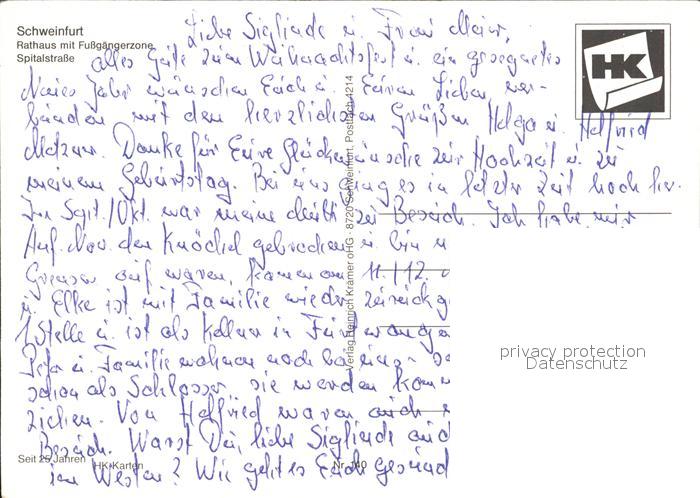 Schweinfurt
Rathaus mit Fußgängerzone
Spitalstraße
HK
Liebe Sieglinde u. Frau Meier,
alles Gute zum Weihnachtsfest u. ein gesegnetes
Neues Jahr wünschen Euch u. Euren Lieben, ver-
bunden mit den herzlichsten Grüßen Helga u. Helfried
Metzner. Danke für Eure Glückwünsche zur Hochzeit u. zu
meinem Geburtstag. Bei uns ging es in letzter Zeit hoch her.
Im Sept./Okt. war meine zu Besuch. Ich habe mir
Anf. Nov. den Knöchel gebrochen u. bin
Grenzen auf waren, kamen am 11./12.
u. Elke ist mit Familie wieder zurück
1 Stelle u. ist als Kellner in
u. Familie wohnen noch bei uns
schon als Schlosser, sie werden
ziehen. Von Helfried waren auch
Besuch. Warst Du, liebe Sieglinde auch
im Westen? Wie geht es Euch gesund
Verlag Heinrich Krämer oHG · 8720 Schweinfurt, Postfach 4214
privacy protection
Datenschutz
Seit 25 Jahren HK-Karten
Nr. 140